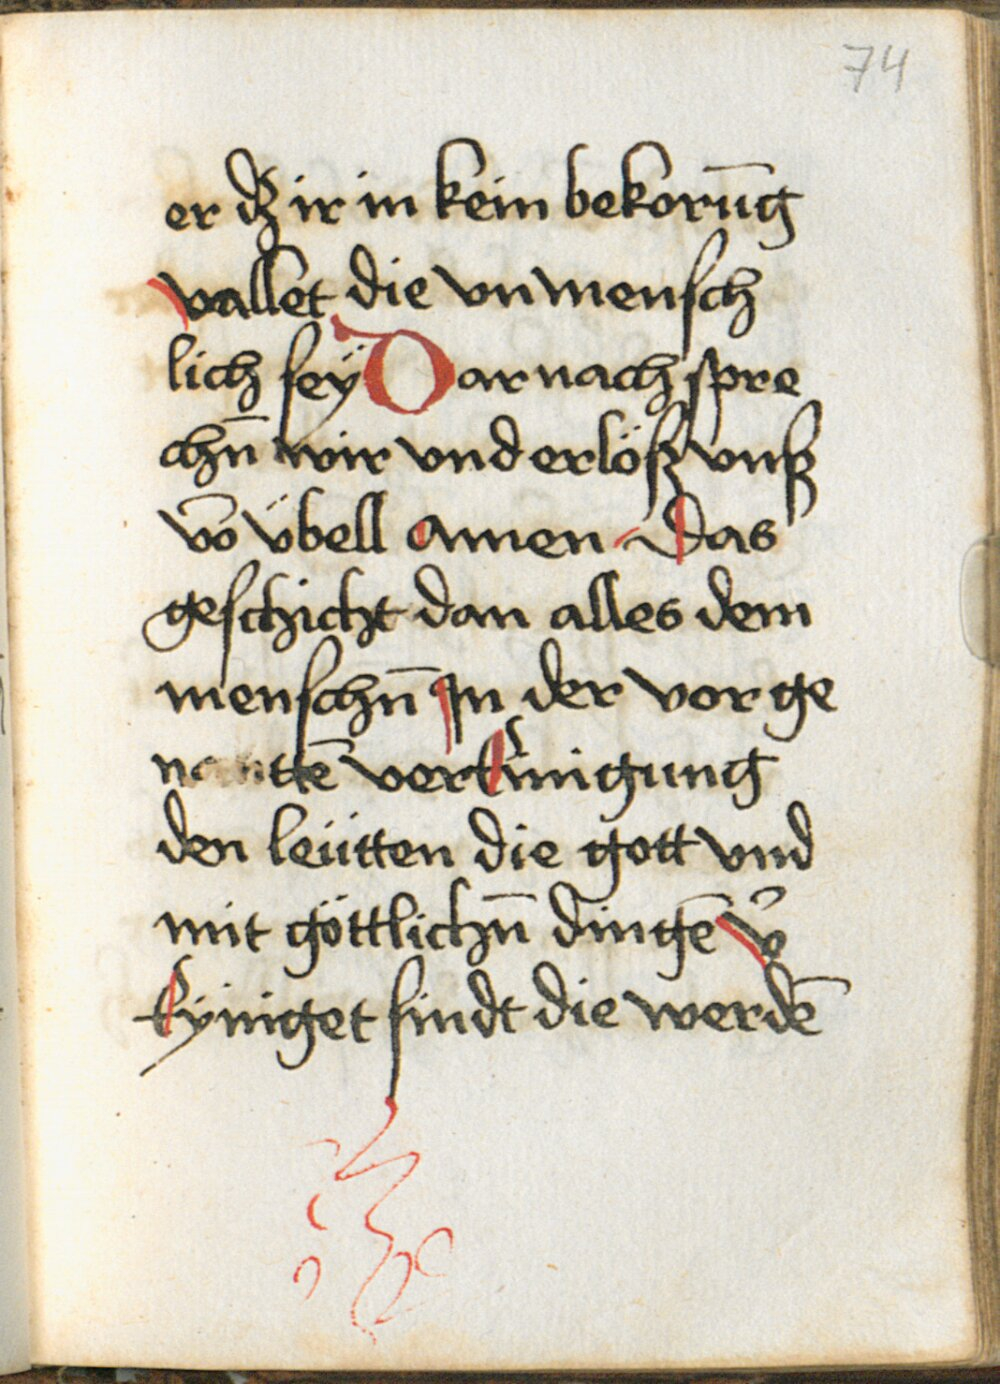 74
er dz ir in kein bekorūg
vallet die vnmensch
lich seÿ Darnach spre
chn̄ wir vnd erlöß vnß
vō übell Amen Das
geschicht dan alles dem
menschn̄ In der vor ge
tē verEinigung
den leütten die gott vnd
mit göttlichn̄ dingē v̓
Eyniget sindt die werdē